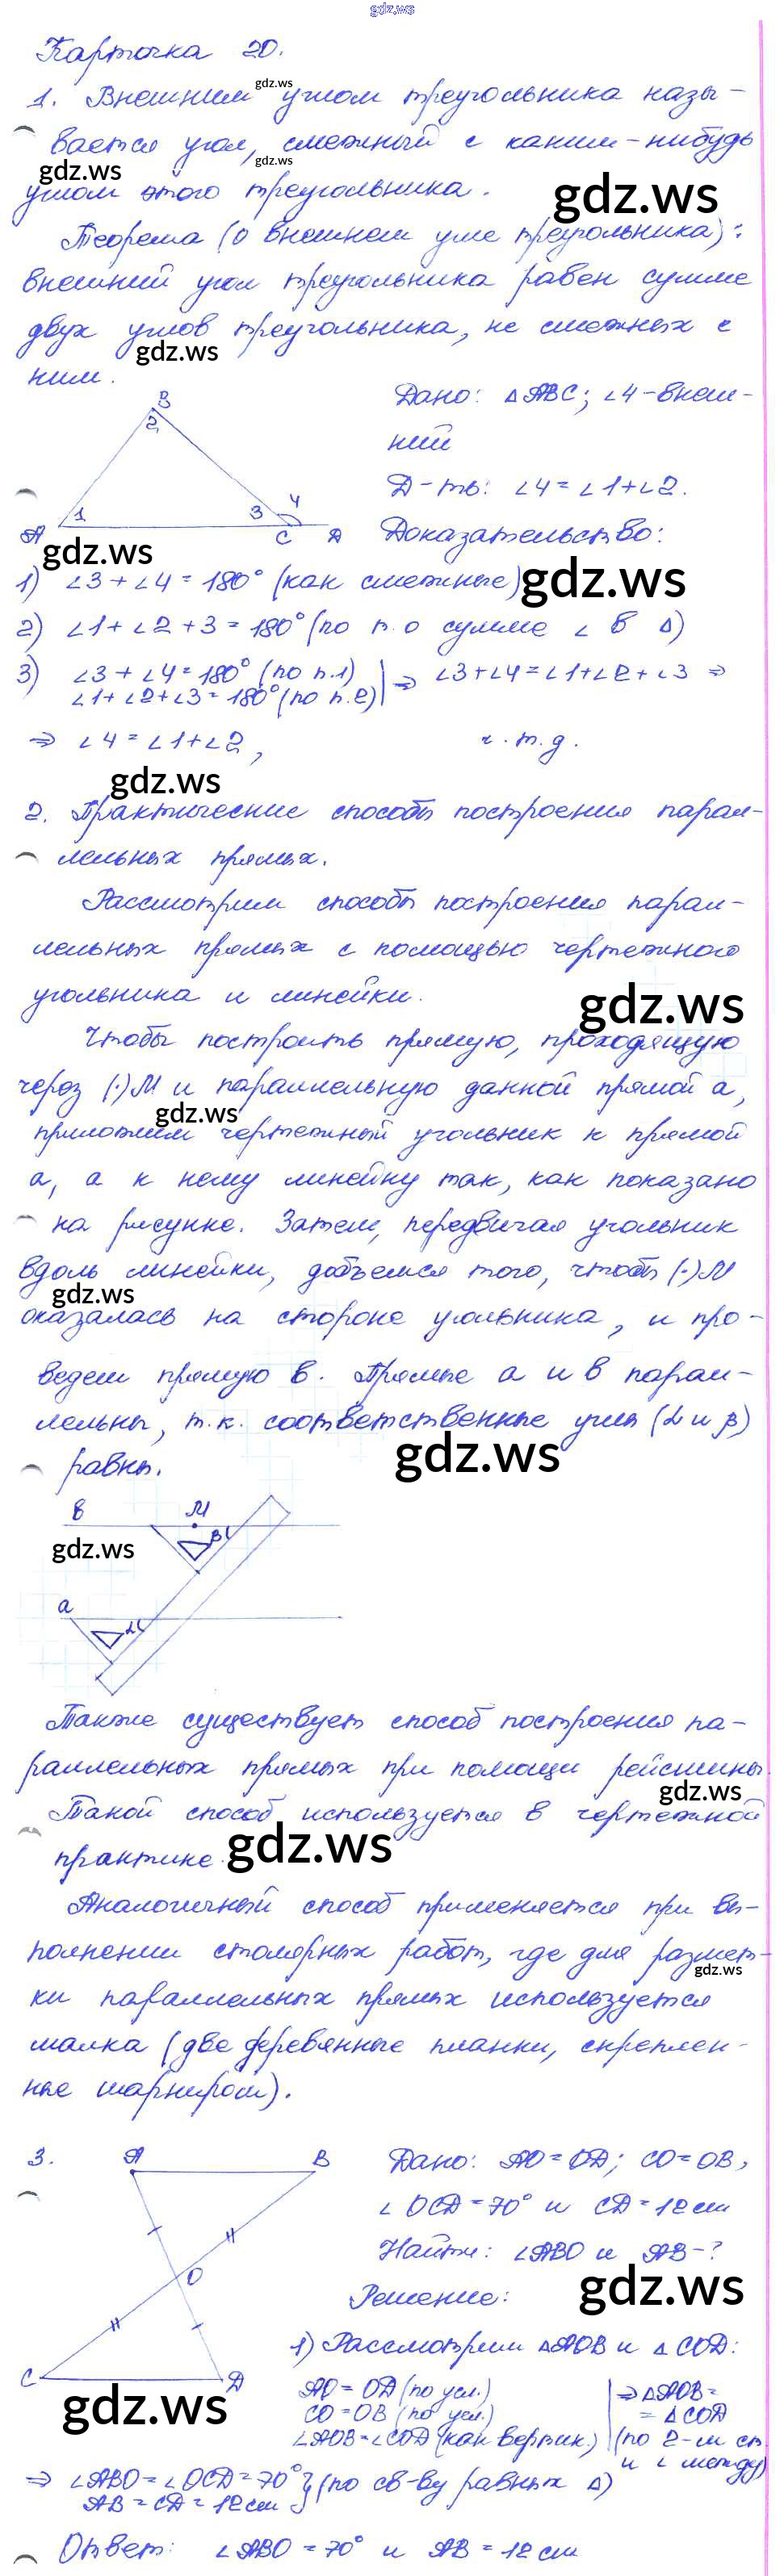 gdz.ws
Карточка 20.
gdz.ws
1. Внешним углом треугольника назы-
вается угол, смежный с каким-нибудь
gdz.ws
gdz.ws
углом этого треугольника.
gdz.ws
Теорема (о внешнем угле треугольника):
внешний угол треугольника равен сумме
двух углов треугольника, не смежных с
gdz.ws
ним.
Дано: △ABC; ∠4-внеш-
ний
Д-ть: ∠4=∠1+∠2.
Доказательство:
B
2
1 3 4
A C D
gdz.ws
1) ∠3+∠4=180° (как смежные)
gdz.ws
2) ∠1+∠2+3=180° (по т. о сумме ∠ в △)
3) ∠3+∠4=180° (по п.1) | ⇒ ∠3+∠4=∠1+∠2+∠3 ⇒
∠1+∠2+∠3=180° (по п.2) |
⇒ ∠4=∠1+∠2, ч.т.д.
gdz.ws
2. Практические способы построения парал-
лельных прямых.
Рассмотрим способы построения парал-
лельных прямых с помощью чертежного
угольника и линейки.
gdz.ws
Чтобы построить прямую, проходящую
через (·)M и параллельную данной прямой a,
gdz.ws
приложим чертежный угольник к прямой
a, а к нему линейку так, как показано
на рисунке. Затем, передвигая угольник
вдоль линейки, добьемся того, чтобы (·)M
gdz.ws
оказалась на стороне угольника, и про-
ведем прямую в. Прямые a и в парал-
лельны, т.к. соответственные углы (α и β)
gdz.ws
равны.
в M
β
gdz.ws
a
α
Также существует способ построения па-
раллельных прямых при помощи рейсшины.
gdz.ws
Такой способ используется в чертежной
практике.
gdz.ws
Аналогичный способ применяется при вы-
полнении столярных работ, где для размет-
gdz.ws
ки параллельных прямых используется
малка (две деревянные планки, скреплен-
ные шарниром).
3. A B
O
C D
Дано: AO=OD; CO=OB,
∠OCD=70° и CD=12см
Найти: ∠ABO и AB-?
gdz.ws
Решение:
1) Рассмотрим △AOB и △COD:
gdz.ws
AO=OD (по усл.) | ⇒ △AOB=
CO=OB (по усл.) | =△COD
∠AOB=∠COD (как вертик.) | (по 2-м ст.
и ∠ между)
⇒ ∠ABO=∠OCD=70° } (по св-ву равных △)
AB=CD=12см
Ответ: ∠ABO=70° и AB=12см